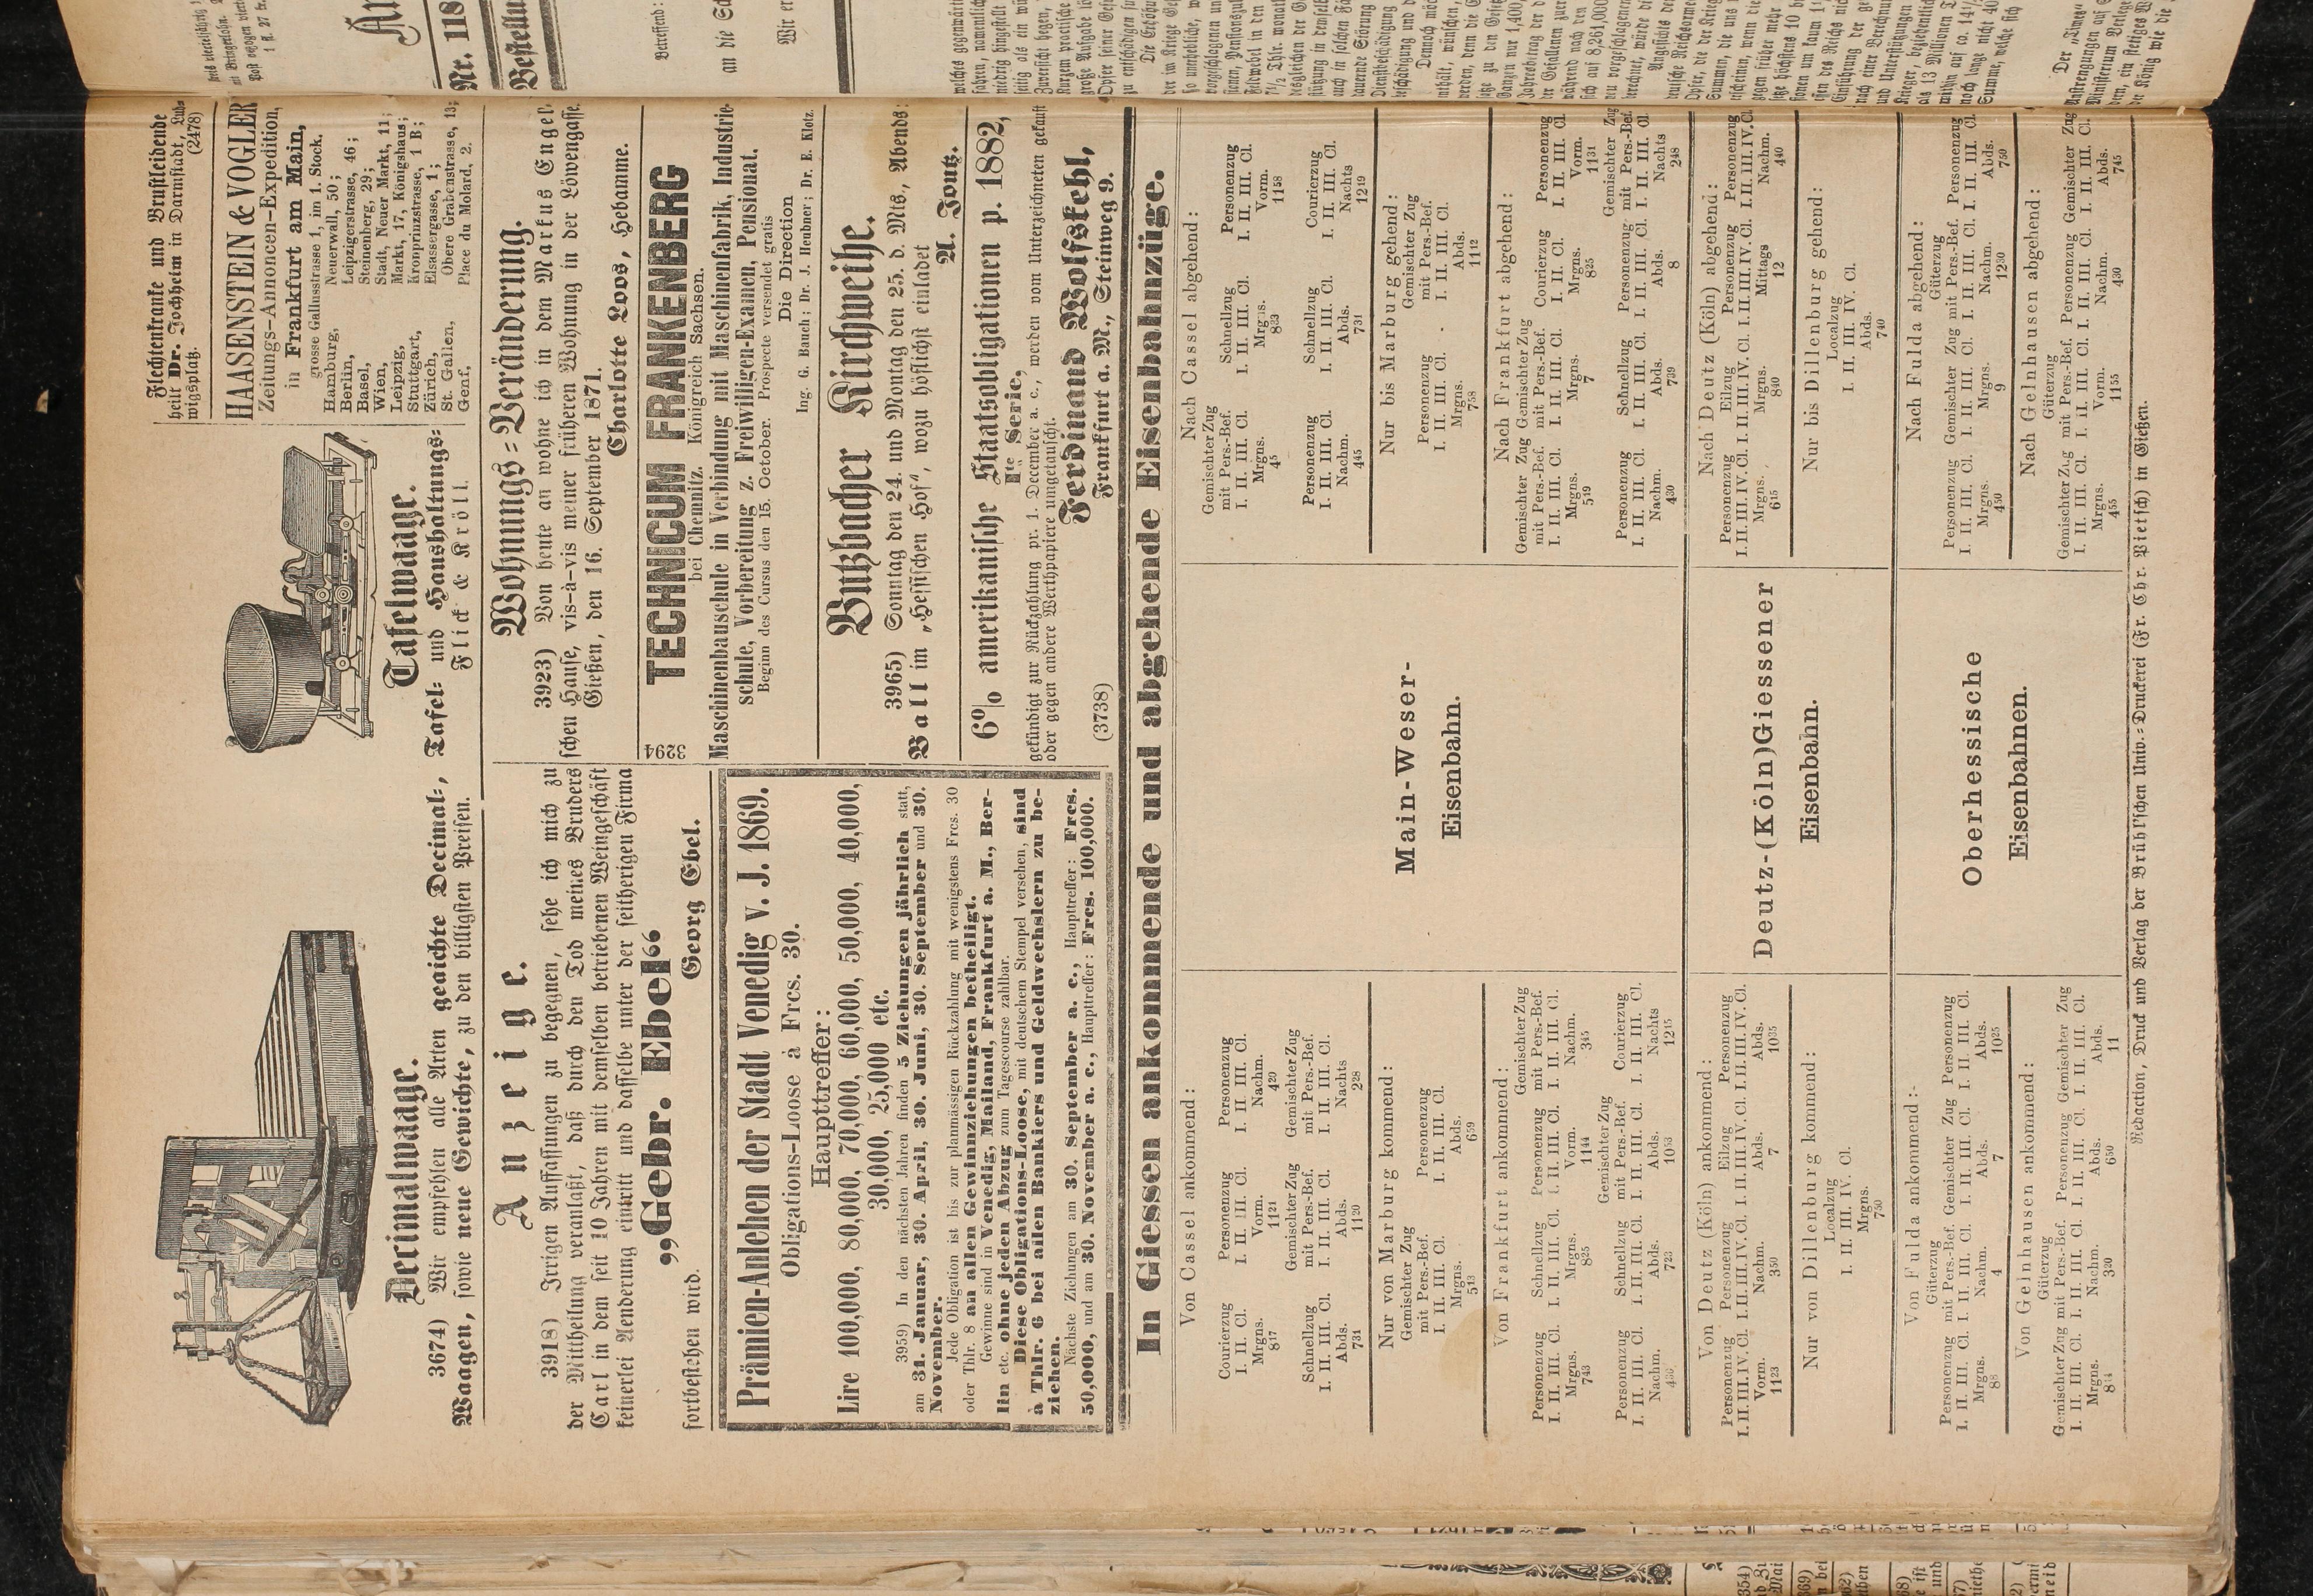 Decimalwaage.
Tafelwaage.
3674) Wir empfehlen alle Arten geaichte Decimal-, Tafel- und Haushaltungs-
Waagen, sowie neue Gewichte, zu den billigsten Preisen.
Flick & Kröll.
Anzeige.
3918) Irrigen Auffassungen zu begegnen, sehe ich mich zu
der Mittheilung veranlaßt, daß durch den Tod meines Bruders
Carl in dem seit 10 Jahren mit demselben betriebenen Weingeschäft
keinerlei Aenderung eintritt und dasselbe unter der seitherigen Firma
„Gebr. Ebel“
fortbestehen wird.
Georg Ebel.
Prämien-Anlehen der Stadt Venedig v. J. 1869.
Obligations-Loose à Frcs. 30.
Haupttreffer:
Lire 100,000, 80,000, 70,000, 60,000, 50,000, 40,000,
30,000, 25,000 etc.
3959) In den nächsten Jahren finden 5 Ziehungen jährlich statt,
am 31. Januar, 30. April, 30. Juni, 30. September und 30.
November.
Jede Obligation ist bis zur planmässigen Rückzahlung mit wenigstens Frcs. 30
oder Thlr. 8 an allen Gewinnziehungen betheiligt.
Gewinne sind in Venedig, Mailand, Frankfurt a. M., Ber-
lin etc. ohne jeden Abzug zum Tagescourse zahlbar.
Diese Obligations-Loose, mit deutschem Stempel versehen, sind
à Thlr. 6 bei allen Bankiers und Geldwechslern zu be-
ziehen.
Nächste Ziehungen am 30. September a. c., Haupttreffer: Frcs.
50,000, und am 30. November a. c., Haupttreffer: Frcs. 100,000.
Flechtenkranke und Brustleidende
heilt Dr. Jochheim in Darmstadt, Lud-
wigsplatz. (2478)
HAASENSTEIN & VOGLER
Zeitungs-Annoncen-Expedition,
in Frankfurt am Main,
grosse Gallusstrasse 1, im 1. Stock.
Hamburg, Neuerwall, 50;
Berlin, Leipzigerstrasse, 46;
Basel, Steinenberg, 29;
Wien, Stadt, Neuer Markt, 11;
Leipzig, Markt, 17, Königshaus;
Stuttgart, Kronprinzstrasse, 1 B;
Zürich, Elsassergasse, 1;
St. Gallen, Obere Grabenstrasse, 13;
Genf, Place du Molard, 2.
Wohnungs-Veränderung.
3923) Von heute an wohne ich in dem Markus Engel-
schen Hause, vis-à-vis meiner früheren Wohnung in der Löwengasse.
Gießen, den 16. September 1871.
Charlotte Loos, Hebamme.
3294
TECHNICUM FRANKENBERG
bei Chemnitz. Königreich Sachsen.
Maschinenbauschule in Verbindung mit Maschinenfabrik, Industrie-
schule, Vorbereitung z. Freiwilligen-Examen, Pensionat.
Beginn des Cursus den 15. October. Prospecte versendet gratis
Die Direction
Ing. G. Bauch; Dr. J. Heubner; Dr. E. Klotz.
Butzbacher Kirchweihe.
3965) Sonntag den 24. und Montag den 25. d. Mts., Abends:
Ball im „Hessischen Hof“, wozu höflichst einladet
A. Joutz.
6% amerikanische Staatsobligationen p. 1882,
IIte Serie,
gekündigt zur Rückzahlung pr. 1. December a. c., werden vom Unterzeichneten gekauft
oder gegen andere Werthpapiere umgetauscht.
Ferdinand Wolfskehl,
(3738) Frankfurt a. M., Steinweg 9.
In Giessen ankommende und abgehende Eisenbahnzüge.
Von Cassel ankommend:
Courierzug Personenzug Personenzug
I. II. Cl. I. II. III. Cl. I. II. III. Cl.
Mrgns. Vorm. Nachm.
8 17 11 21 4 20
Schnellzug Gemischter Zug Gemischter Zug
mit Pers.-Bef. mit Pers.-Bef.
I. II. III. Cl. I. II. III. Cl. I. II. III. Cl.
Abds. Abds. Nachts
7 31 11 20 2 28
Nur von Marburg kommend:
Gemischter Zug Personenzug
mit Pers.-Bef. I. II. III. Cl.
I. II. III. Cl. Abds.
Mrgns. 6 59
5 13
Von Frankfurt ankommend:
Personenzug Schnellzug Personenzug Gemischter Zug
mit Pers.-Bef.
I. II. III. Cl. I. II. III. Cl. I. II. III. Cl. I. II. III. Cl.
Mrgns. Mrgns. Vorm. Nachm.
7 43 8 25 11 44 3 45
Personenzug Schnellzug Gemischter Zug Courierzug
mit Pers.-Bef.
I. II. III. Cl. I. II. III. Cl. I. II. III. Cl. I. II. III. Cl.
Nachm. Abds. Abds. Nachts
7 23 10 53 12 15
Main-Weser-
Eisenbahn.
Nach Cassel abgehend:
Gemischter Zug Schnellzug Personenzug
mit Pers.-Bef. I. II. III. Cl. I. II. III. Cl.
I. II. III. Cl. Mrgns. Vorm.
Mrgns. 8 33 11 58
4 5
Personenzug Schnellzug Courierzug
I. II. III. Cl. I. II. III. Cl. I. II. III. Cl.
Nachm. Abds. Nachts
4 45 7 31 12 19
Nur bis Marburg gehend:
Personenzug Gemischter Zug
I. II. III. Cl. mit Pers.-Bef.
Mrgns. I. II. III. Cl.
7 58 Abds.
11 12
Nach Frankfurt abgehend:
Gemischter Zug Gemischter Zug Courierzug Personenzug
mit Pers.-Bef. mit Pers.-Bef. I. II. Cl. I. II. III. Cl.
I. II. III. Cl. I. II. III. Cl. Mrgns. Vorm.
Mrgns. Mrgns. 8 25 11 31
5 19 7
Personenzug Schnellzug Personenzug Gemischter Zug
mit Pers.-Bef.
I. II. III. Cl. I. II. III. Cl. I. II. III. Cl. I. II. III. Cl.
Nachm. Abds. Abds. Nachts
4 30 7 39 8 2 48
Von Deutz (Köln) ankommend:
Personenzug Personenzug Eilzug Personenzug
I. II. III. IV. Cl. I. II. III. IV. Cl. I. II. III. IV. Cl. I. II. III. IV. Cl.
Vorm. Nachm. Abds. Abds.
11 23 3 50 7 10 35
Nur von Dillenburg kommend:
Localzug
I. II. III. IV. Cl.
Mrgns.
7 50
Deutz-(Köln)Giessener
Eisenbahn.
Nach Deutz (Köln) abgehend:
Personenzug Eilzug Personenzug Personenzug
I. II. III. IV. Cl. I. II. III. IV. Cl. I. II. III. IV. Cl. I. II. III. IV. Cl.
Mrgns. Mrgns. Mittags Nachm.
6 15 8 40 12 4 40
Nur bis Dillenburg gehend:
Localzug
I. II. III. IV. Cl.
Abds.
7 40
Von Fulda ankommend:
Güterzug
Personenzug mit Pers.-Bef. Gemischter Zug Personenzug
I. II. III. Cl. I. II. III. Cl. I. II. III. Cl. I. II. III. Cl.
Mrgns. Nachm. Abds. Abds.
8 8 4 7 10 25
Von Gelnhausen ankommend:
Güterzug
Gemischter Zug mit Pers.-Bef. Personenzug Gemischter Zug
I. II. III. Cl. I. II. III. Cl. I. II. III. Cl. I. II. III. Cl.
Mrgns. Nachm. Abds. Abds.
3 20 6 50 11
Oberhessische
Eisenbahnen.
Nach Fulda abgehend:
Güterzug
Personenzug Gemischter Zug mit Pers.-Bef. Personenzug
I. II. III. Cl. I. II. III. Cl. I. II. III. Cl. I. II. III. Cl.
Mrgns. Mrgns. Nachm. Abds.
4 50 9 12 30 7 50
Nach Gelnhausen abgehend:
Güterzug
Gemischter Zug mit Pers.-Bef. Personenzug Gemischter Zug
I. II. III. Cl. I. II. III. Cl. I. II. III. Cl. I. II. III. Cl.
Mrgns. Vorm. Nachm. Abds.
4 55 11 55 4 30 7 45
Redaction, Druck und Verlag der Brühl'schen Univ.-Druckerei (Fr. Chr. Pietsch) in Gießen.
Nr. 118
Betreffend:
an die
Wir